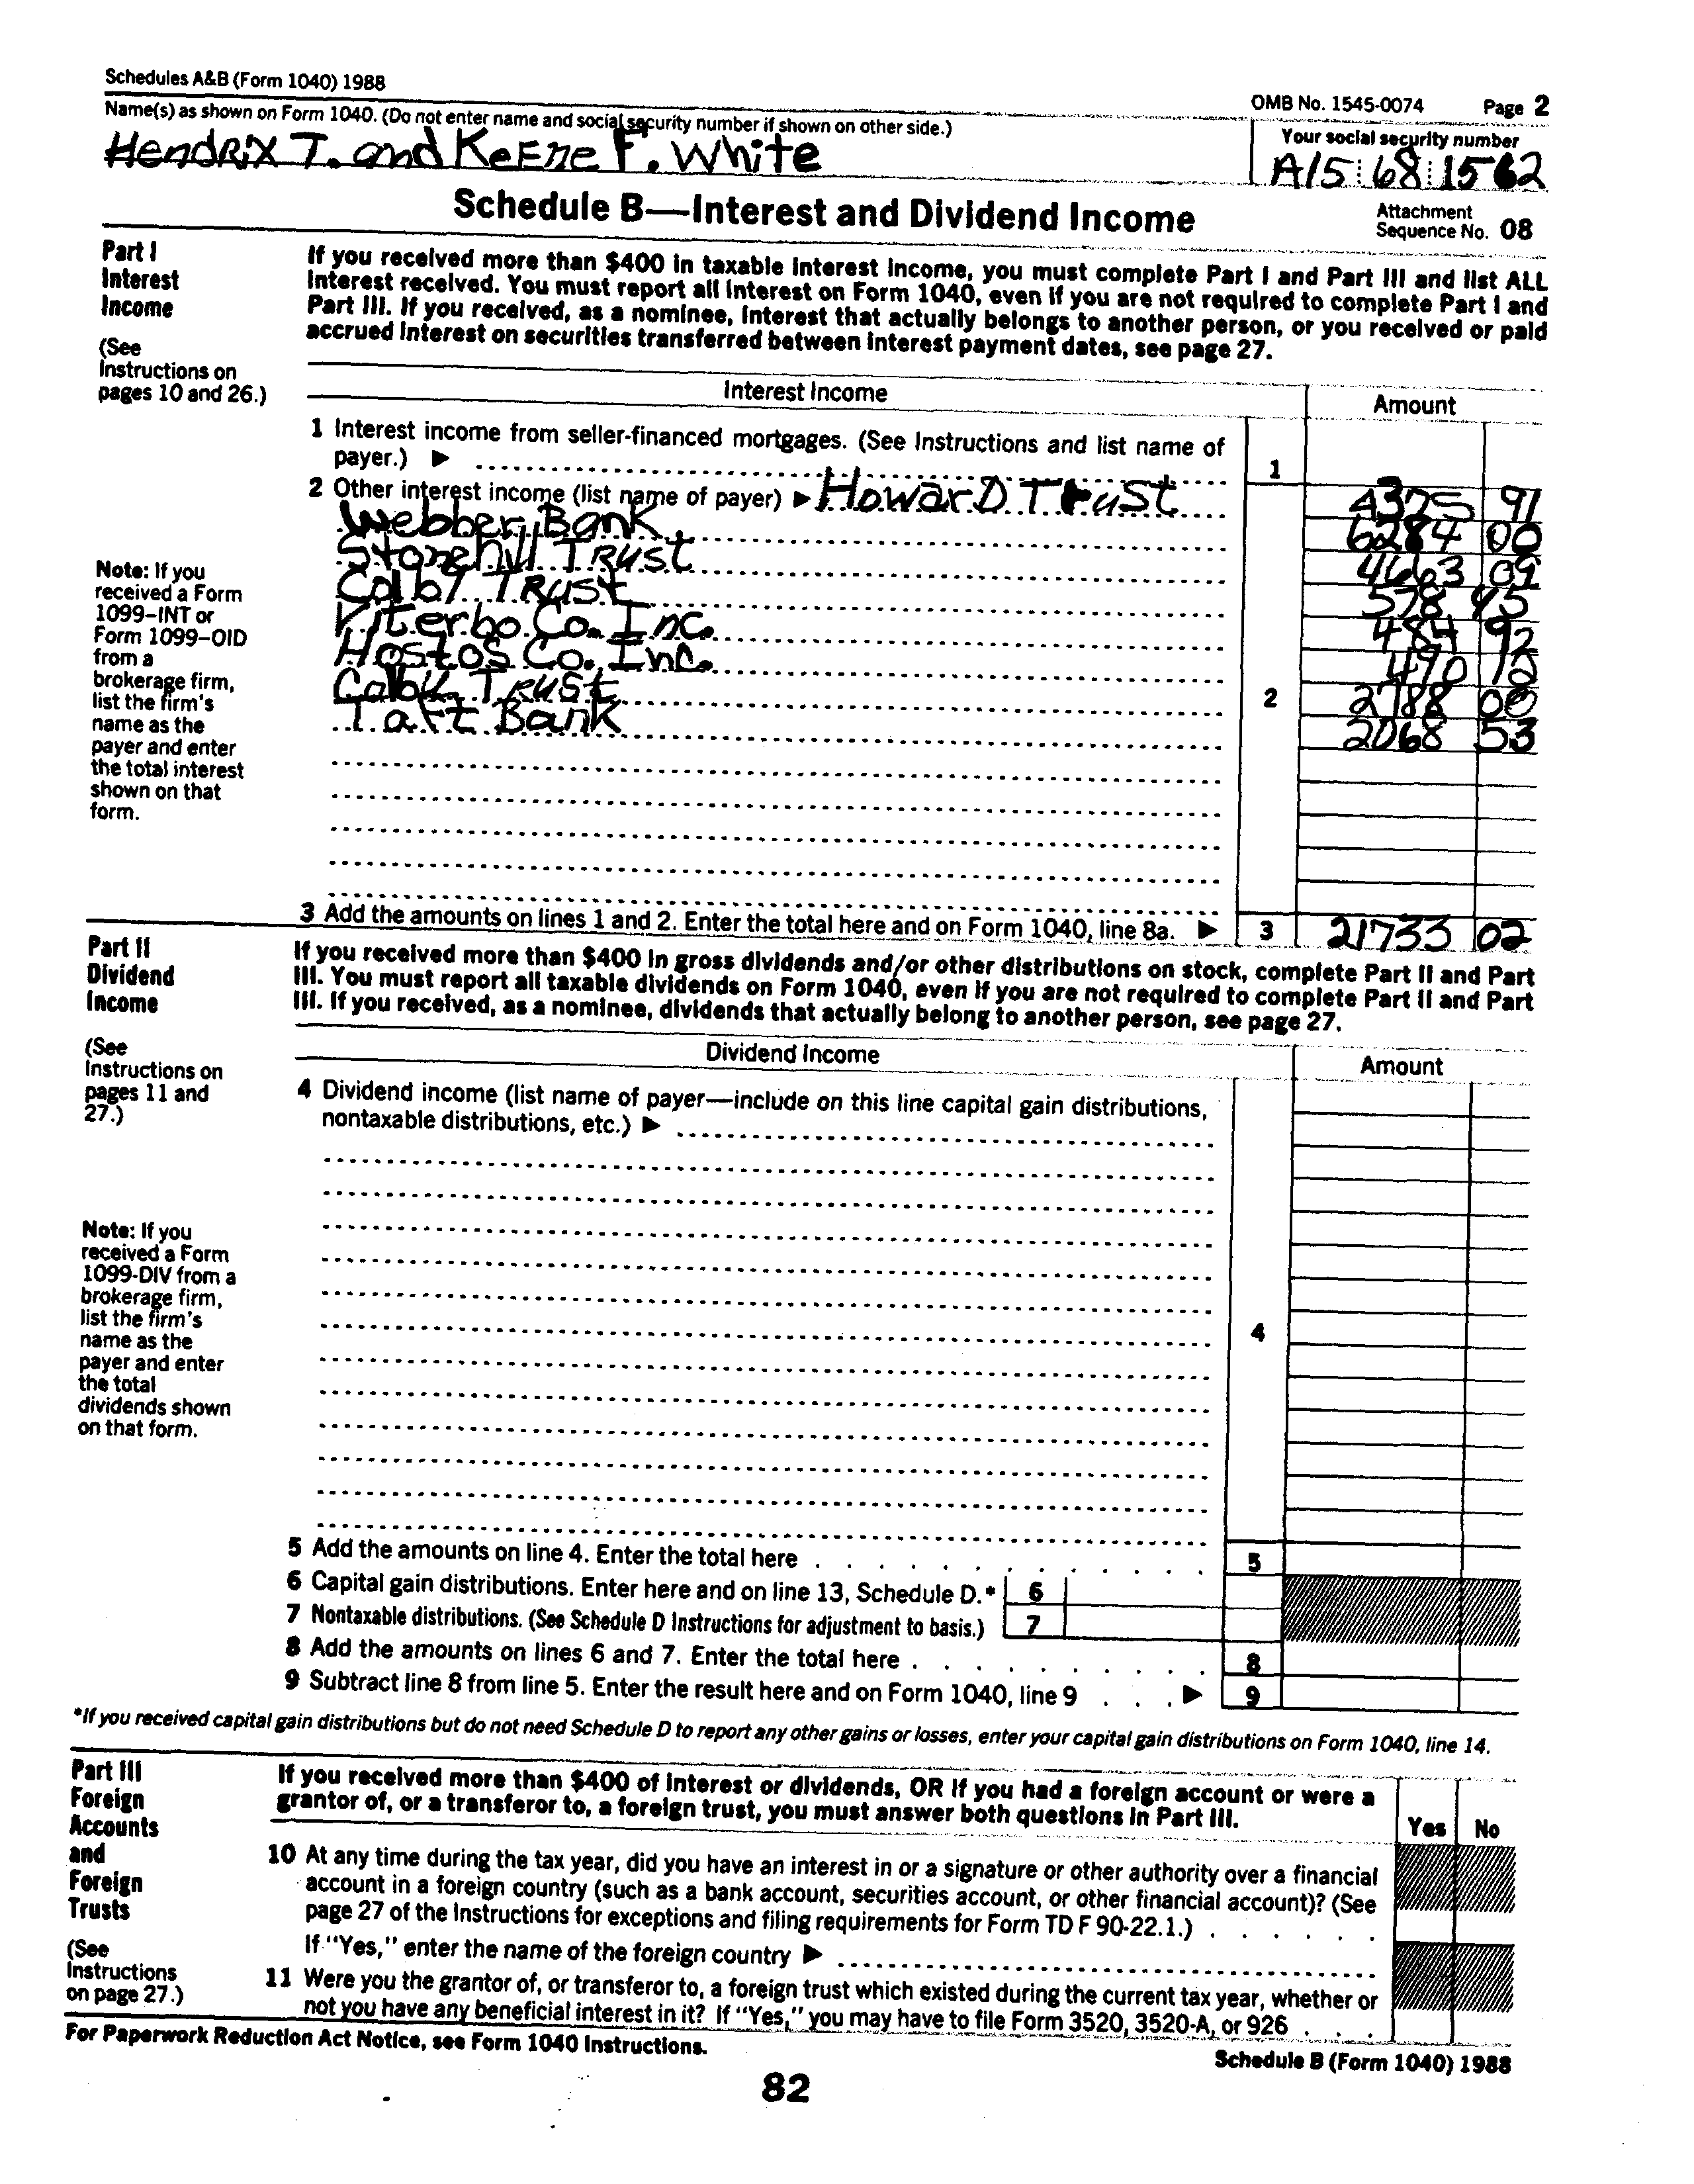 Schedules A&B (Form 1040) 1988
OMB No. 1545-0074 Page 2
Name(s) as shown on Form 1040. (Do not enter name and social security number if shown on other side.)
Your social security number
HendRix T. and KeEne F. White
A15 68 1562
Schedule B—Interest and Dividend Income
Attachment
Sequence No. 08
Part I
Interest
Income
(See
Instructions on
pages 10 and 26.)
If you received more than $400 in taxable interest income, you must complete Part I and Part III and list ALL
interest received. You must report all interest on Form 1040, even if you are not required to complete Part I and
Part III. If you received, as a nominee, interest that actually belongs to another person, or you received or paid
accrued interest on securities transferred between interest payment dates, see page 27.
Interest Income
Amount
1 Interest income from seller-financed mortgages. (See Instructions and list name of
payer.) ▶
1
2 Other interest income (list name of payer) ▶ HowarD Trust 4375 91
Webber Bank 6284 00
Stonehill TRust 4663 09
Colby TRust 578 45
Viterbo Co. Inc. 484 92
Hostos Co., Inc. 490 12
Colby TRust 2788 00
Taft Bank 2068 53
2
Note: If you
received a Form
1099–INT or
Form 1099–OID
from a
brokerage firm,
list the firm's
name as the
payer and enter
the total interest
shown on that
form.
3 Add the amounts on lines 1 and 2. Enter the total here and on Form 1040, line 8a. ▶ 3 21733 02
Part II
Dividend
Income
(See
Instructions on
pages 11 and
27.)
If you received more than $400 in gross dividends and/or other distributions on stock, complete Part II and Part
III. You must report all taxable dividends on Form 1040, even if you are not required to complete Part II and Part
III. If you received, as a nominee, dividends that actually belong to another person, see page 27.
Dividend Income
Amount
4 Dividend income (list name of payer—include on this line capital gain distributions,
nontaxable distributions, etc.) ▶
4
Note: If you
received a Form
1099-DIV from a
brokerage firm,
list the firm's
name as the
payer and enter
the total
dividends shown
on that form.
5 Add the amounts on line 4. Enter the total here . . . . . . . . . . 5
6 Capital gain distributions. Enter here and on line 13, Schedule D.* 6
7 Nontaxable distributions. (See Schedule D Instructions for adjustment to basis.) 7
8 Add the amounts on lines 6 and 7. Enter the total here . . . . . . . . 8
9 Subtract line 8 from line 5. Enter the result here and on Form 1040, line 9 . . . ▶ 9
*If you received capital gain distributions but do not need Schedule D to report any other gains or losses, enter your capital gain distributions on Form 1040, line 14.
Part III
Foreign
Accounts
and
Foreign
Trusts
(See
Instructions
on page 27.)
If you received more than $400 of interest or dividends, OR if you had a foreign account or were a
grantor of, or a transferor to, a foreign trust, you must answer both questions in Part III.
Yes No
10 At any time during the tax year, did you have an interest in or a signature or other authority over a financial
account in a foreign country (such as a bank account, securities account, or other financial account)? (See
page 27 of the Instructions for exceptions and filing requirements for Form TD F 90-22.1.) . . . . . .
If "Yes," enter the name of the foreign country ▶
11 Were you the grantor of, or transferor to, a foreign trust which existed during the current tax year, whether or
not you have any beneficial interest in it? If "Yes," you may have to file Form 3520, 3520-A, or 926 . . .
For Paperwork Reduction Act Notice, see Form 1040 Instructions.
Schedule B (Form 1040) 1988
82